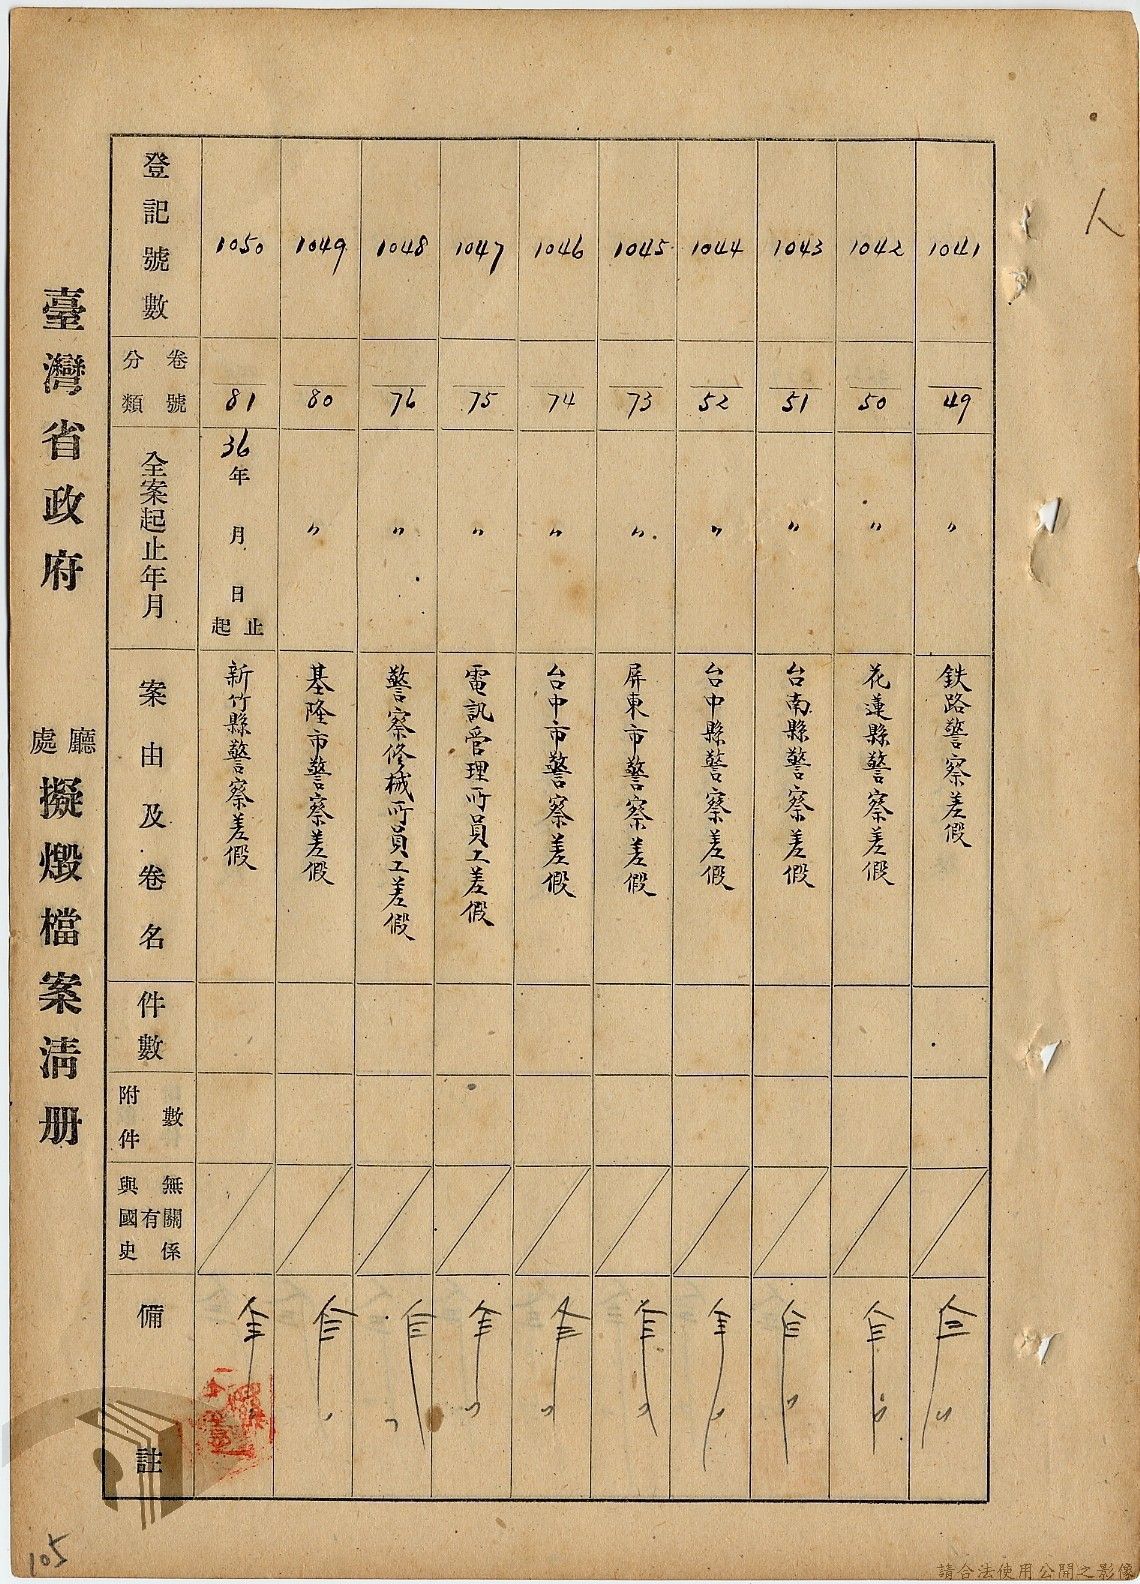 臺灣省政府 廳處 擬燬檔案清册
登記號數
分類
卷號
全案起止年月
案由及卷名
件數
附件
數
與國史
有
無關係
備註
1050
81
36年 月 日
起止
新竹縣警察差假
1049
80
〃
基隆市警察差假
1048
76
〃
警察修械所員工差假
1047
75
〃
電訊管理所員工差假
1046
74
〃
台中市警察差假
1045
73
〃
屏東市警察差假
1044
52
〃
台中縣警察差假
1043
51
〃
台南縣警察差假
1042
50
〃
花蓮縣警察差假
1041
49
〃
鉄路警察差假
105
請合法使用公開之影像